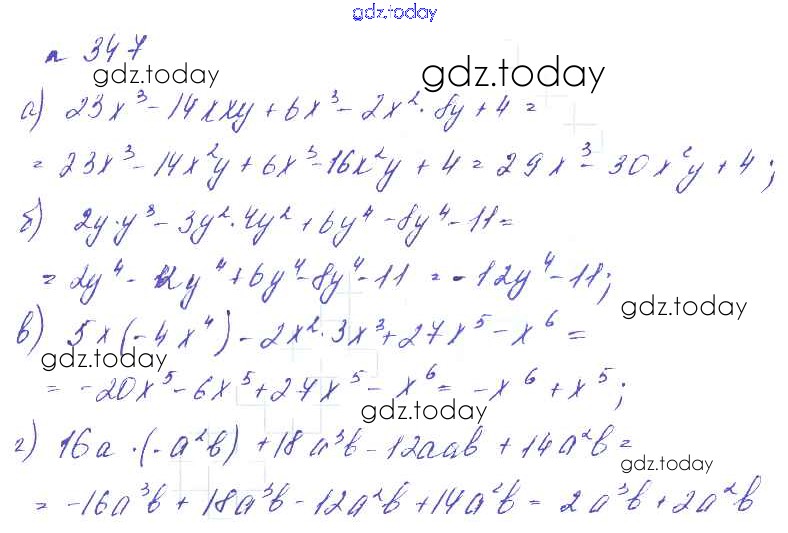 gdz.today
n 347
gdz.today gdz.today
а) 23x³ - 14xxy + 6x³ - 2x²·8y + 4 =
= 23x³ - 14x²y + 6x³ - 16x²y + 4 = 29x³ - 30x²y + 4;
б) 2y·y³ - 3y²·4y² + 6y⁴ - 8y⁴ - 11 =
= 2y⁴ - 12y⁴ + 6y⁴ - 8y⁴ - 11 = -12y⁴ - 11;
gdz.today
в) 5x(-4x⁴) - 2x²·3x³ + 27x⁵ - x⁶ =
gdz.today
= -20x⁵ - 6x⁵ + 27x⁵ - x⁶ = -x⁶ + x⁵;
gdz.today
г) 16a·(-a²b) + 18a³b - 12aab + 14a²b =
gdz.today
= -16a³b + 18a³b - 12a²b + 14a²b = 2a³b + 2a²b